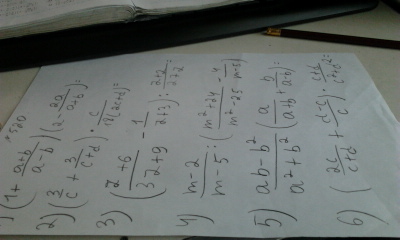 ) (1 + \frac{a+b}{a-b}) (2 - \frac{2a}{a+b}) =
2) (\frac{3}{c} + \frac{3}{c+d}) \cdot \frac{c}{18(2c+d)} =
3) (\frac{z+6}{3z+9} - \frac{1}{z+3}) :
4) \frac{m-2}{m-5} : (\frac{m^2+24}{m^2-25} - \frac{4}{m-5})
5) \frac{ab-b^2}{a^2+b^2} (\frac{a}{a+b} + \frac{b}{a-b}) =
6) (\frac{2c}{c+d} + \frac{d-c}{c}) \cdot \frac{c+d}{c^2+d^2} =